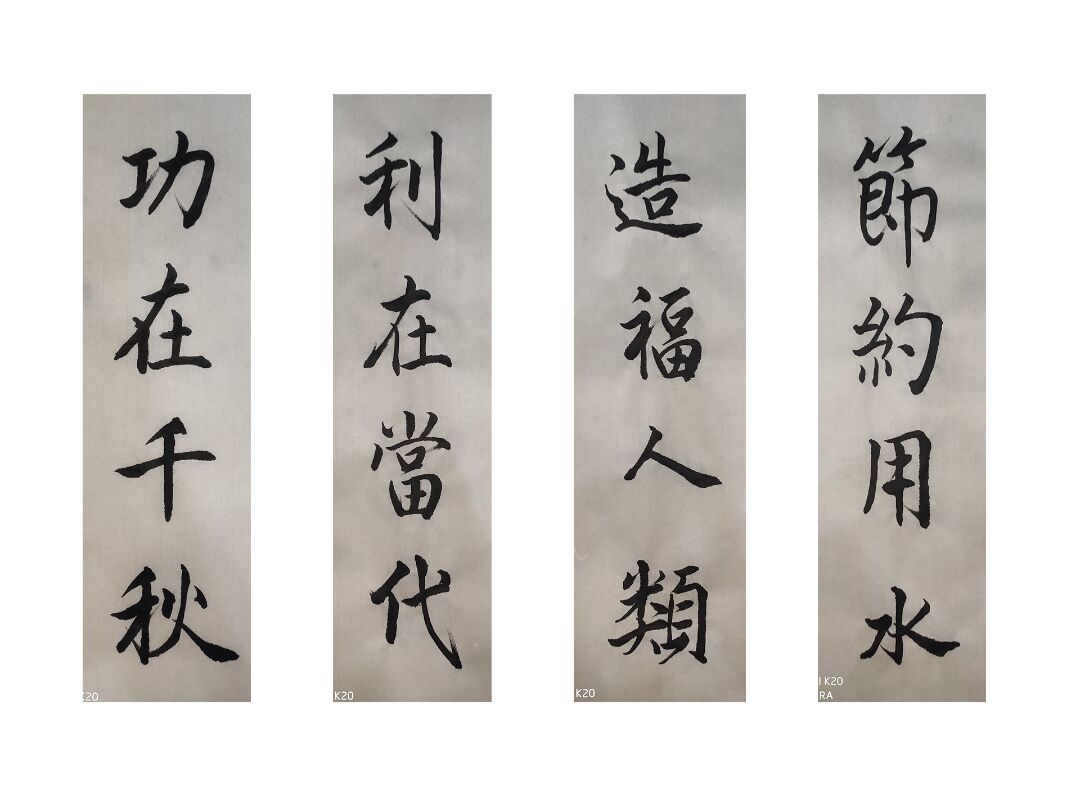 節約用水
造福人類
利在當代
功在千秋
K20
K20
K20
K20
RA